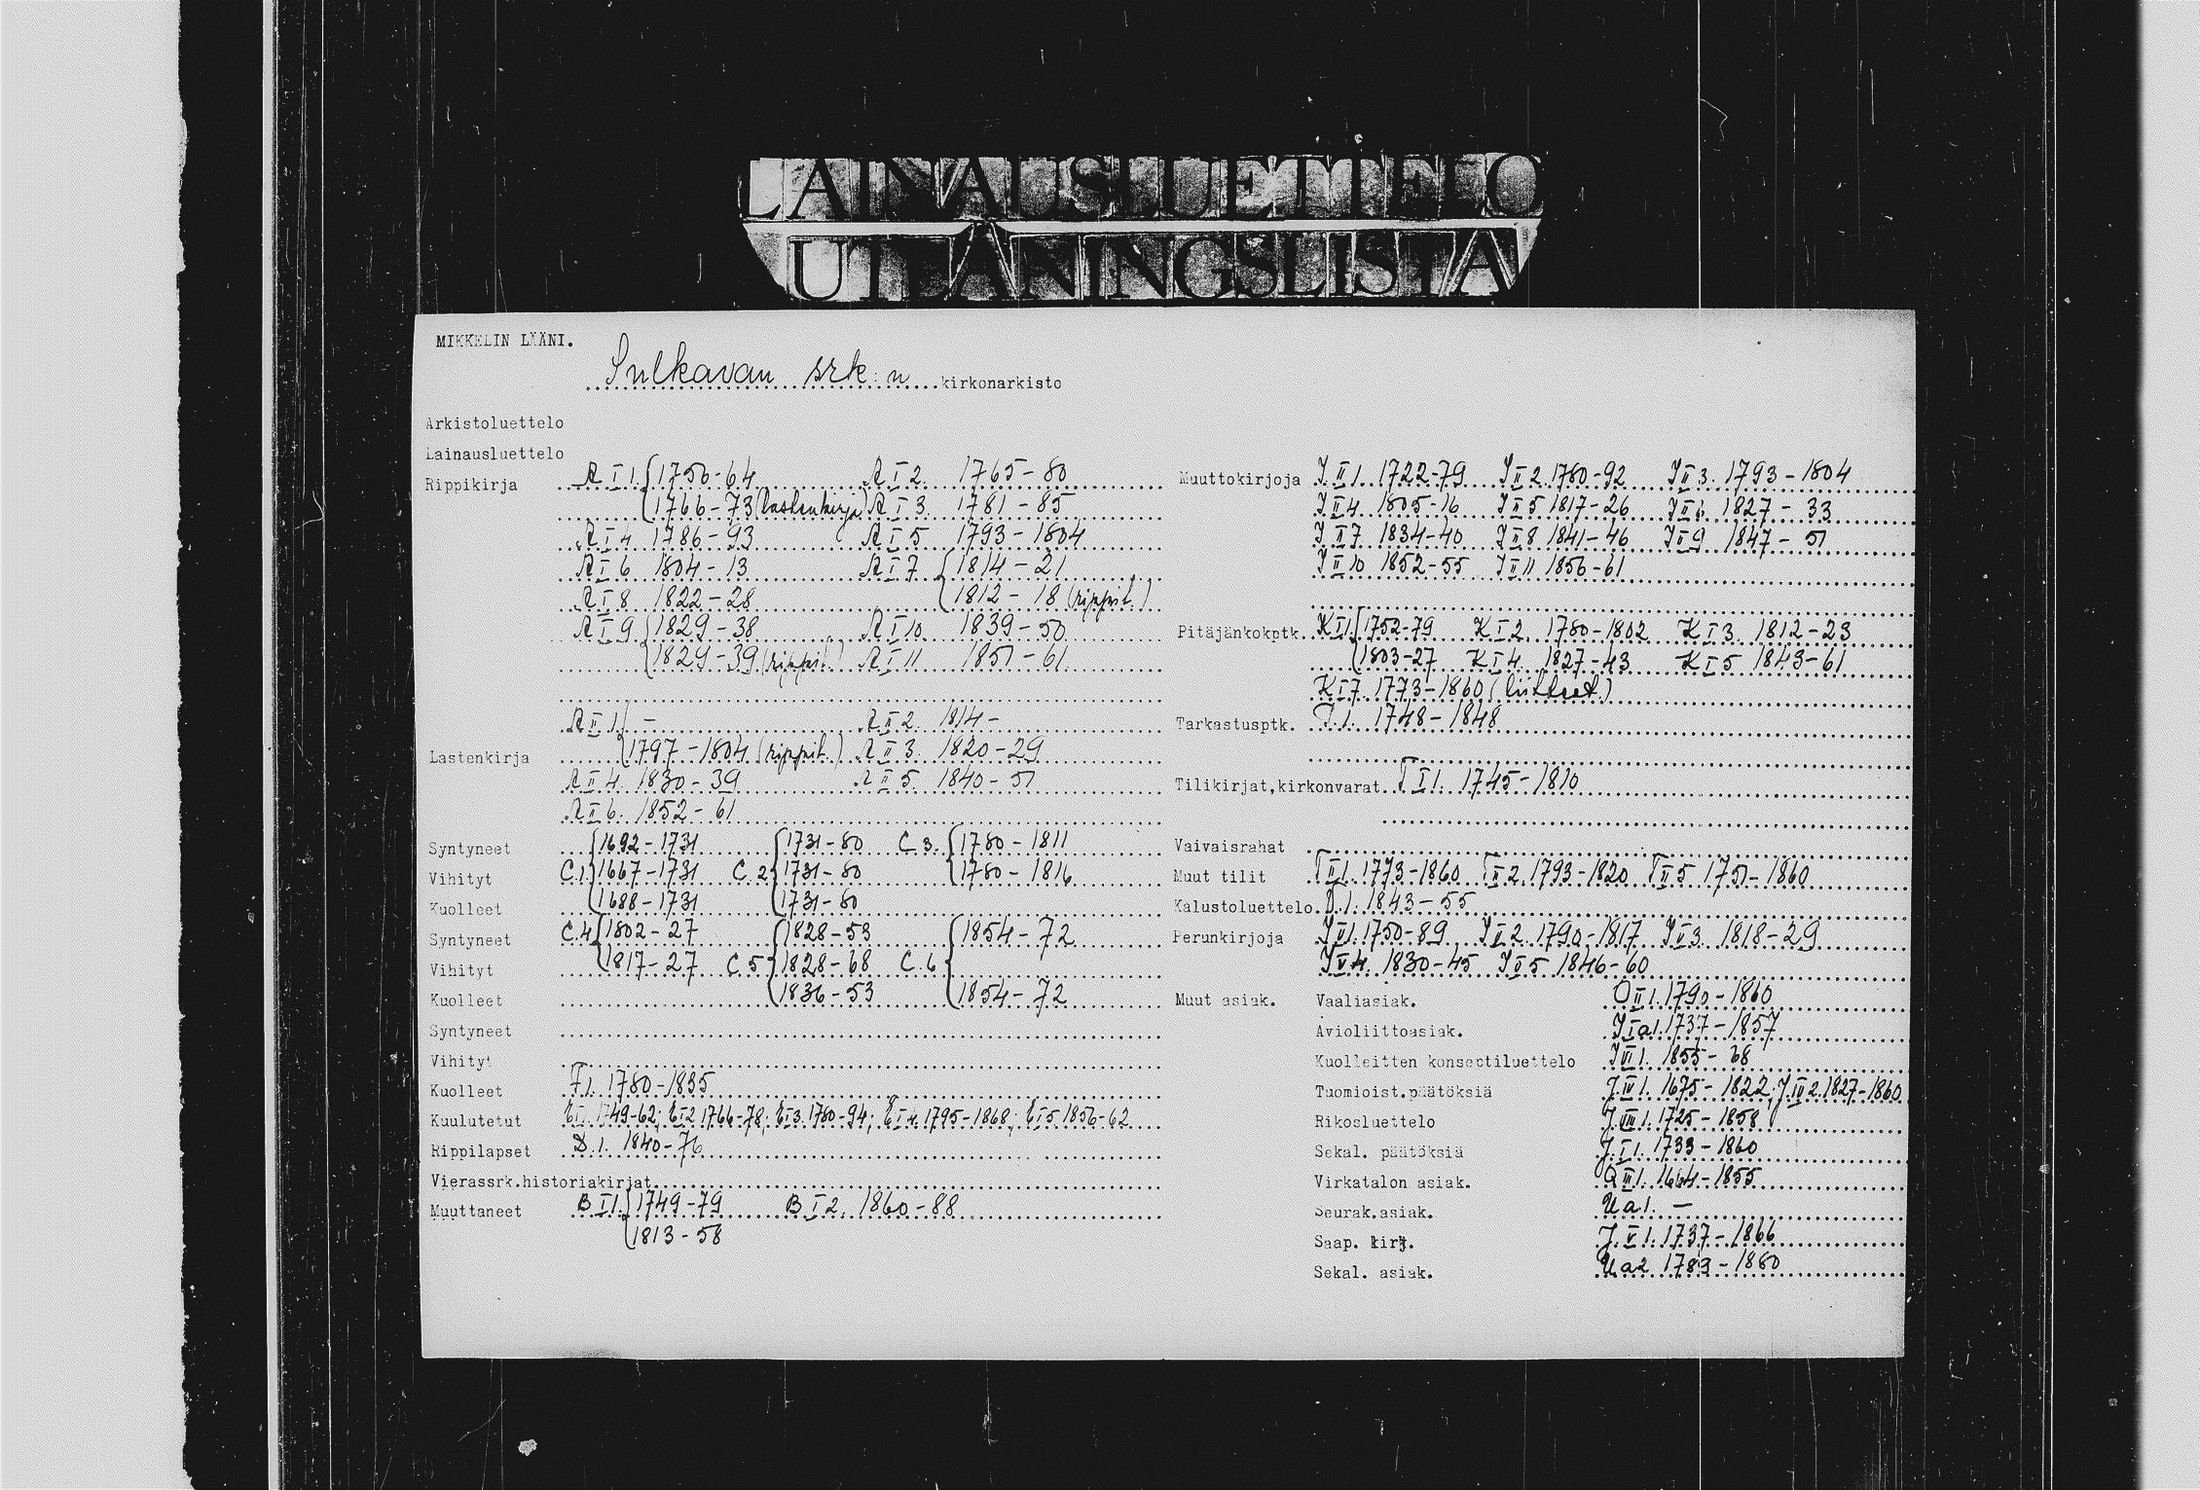 LAINAUSLUETTELO
UTLÅNINGSLISTA
MIKKELIN LÄÄNI.
Sulkavan srk:n kirkonarkisto
Arkistoluettelo
Lainausluettelo
Rippikirja A I 1. 1750-64 A I 2. 1765-80
1766-73 (lastenkirja) A I 3. 1781-85
A I 4 1786-93 A I 5 1793-1804
A I 6 1804-13 A I 7 1814-21
A I 8 1822-28 1812-18 (rippit.)
A I 9 1829-38 A I 10 1839-50
1829-39 (rippit.) A I 11 1851-61
A II 1. - A II 2. 1814-
Lastenkirja 1797-1804 (rippit.) A II 3. 1820-29
A II 4. 1830-39 A II 5. 1840-51
A II 6. 1852-61
Syntyneet 1692-1731 1731-80 C 3. 1780-1811
Vihityt C.1. 1667-1731 C.2 1731-80 1780-1816
Kuolleet 1688-1731 1731-80
Syntyneet C.4 1802-27 1828-53 1854-72
Vihityt 1817-27 C 5 1828-68 C.6
Kuolleet 1836-53 1854-72
Syntyneet
Vihityt
Kuolleet F1. 1780-1835
Kuulutetut E I 1. 1749-62; E I 2 1766-78; E I 3. 1780-94; E I 4. 1795-1868; E I 5. 1856-62
Rippilapset D.1. 1840-76
Vierassrk.historiakirjat
Muuttaneet B I 1. 1749-79 B I 2. 1860-88
1813-58
Muuttokirjoja J II 1. 1722-79 J II 2 1780-92 J II 3. 1793-1804
J II 4 1805-16 J II 5 1817-26 J II 6 1827-33
J II 7 1834-40 J II 8 1841-46 J II 9 1847-51
J II 10 1852-55 J II 11 1856-61
Pitäjänkokptk. K I 1. 1752-79 K I 2. 1780-1802 K I 3. 1812-23
1803-27 K I 4. 1827-43 K I 5 1843-61
K I 7. 1773-1860 (liitteet.)
Tarkastusptk. 1. 1748-1848
Tilikirjat,kirkonvarat T I 1. 1745-1810
Vaivaisrahat
Muut tilit T II 1. 1773-1860 T II 2. 1793-1820 T II 5 1751-1860
Kalustoluettelo 1. 1843-55
Perunkirjoja J V 1. 1750-89 J V 2. 1790-1817 J V 3. 1818-29
J V 4 1830-45 J V 5 1846-60
Muut asiak. Vaaliasiak. O II 1. 1790-1860
Avioliittoasiak. J I a 1. 1737-1857
Kuolleitten konseptiluettelo J VI 1. 1855-68
Tuomioist.päätöksiä J IV 1. 1675-1822; J IV 2. 1827-1860
Rikosluettelo J III 1. 1725-1858
Sekal. päätöksiä J I 1. 1733-1860
Virkatalon asiak. O III 1. 1664-1855
Seurak.asiak. U a 1. -
Saap. kirj. J V 1. 1737-1866
Sekal. asiak. U a 2 1783-1860